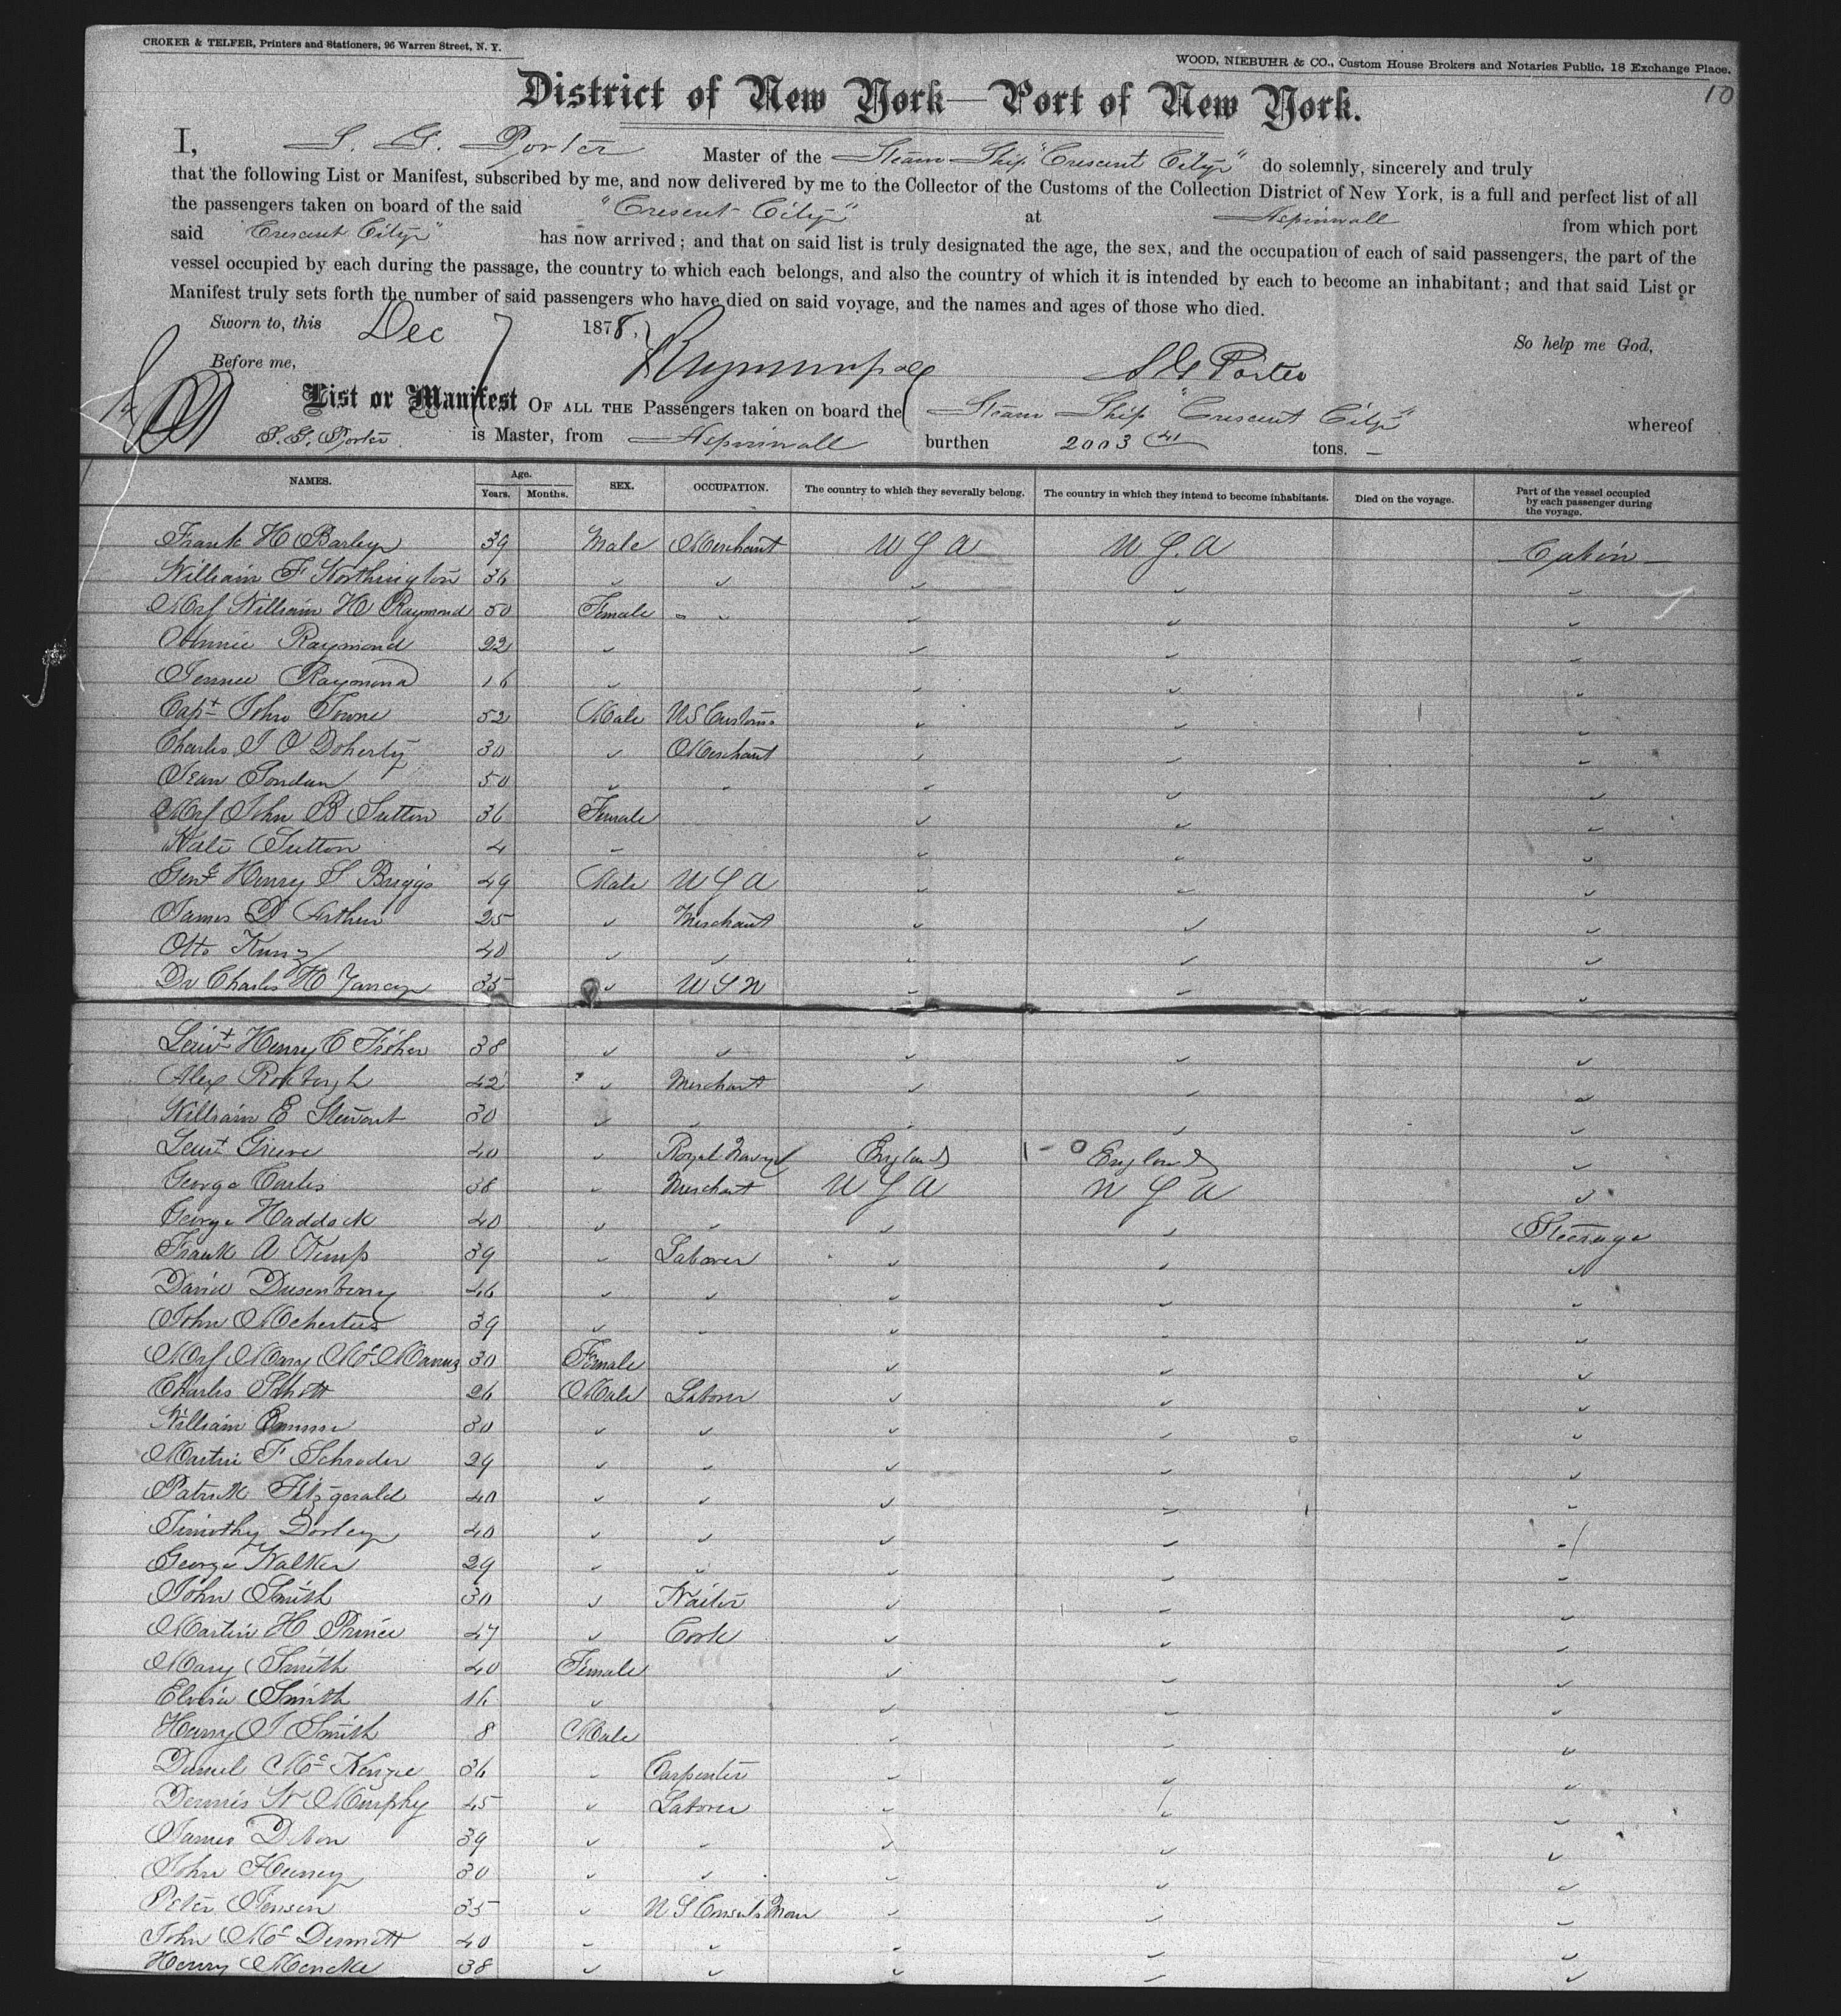 CROKER & TELFER, Printers and Stationers, 96 Warren Street, N. Y.
WOOD, NIEBUHR & CO., Custom House Brokers and Notaries Public, 18 Exchange Place.
10
District of New York—Port of New York.
I, S. G. Porter Master of the Steam Ship "Crescent City" do solemnly, sincerely and truly
that the following List or Manifest, subscribed by me, and now delivered by me to the Collector of the Customs of the Collection District of New York, is a full and perfect list of all
the passengers taken on board of the said "Crescent City" at Aspinwall from which port
said "Crescent City" has now arrived; and that on said list is truly designated the age, the sex, and the occupation of each of said passengers, the part of the
vessel occupied by each during the passage, the country to which each belongs, and also the country of which it is intended by each to become an inhabitant; and that said List or
Manifest truly sets forth the number of said passengers who have died on said voyage, and the names and ages of those who died.
Sworn to, this Dec 7 1878. So help me God,
Before me, S G Porter
List or Manifest OF ALL THE Passengers taken on board the Steam Ship "Crescent City" whereof
S. G. Porter is Master, from Aspinwall burthen 2003 41 tons.
NAMES. Age. Years. Months. SEX. OCCUPATION. The country to which they severally belong. The country in which they intend to become inhabitants. Died on the voyage. Part of the vessel occupied by each passenger during the voyage.
Frank H Barley 39 Male Merchant U S A U S. A Cabin
William F Worthington 36 " " " " "
Mrs William H Raymond 50 Female " " " "
Annie Raymond 22 " " " "
Jennie Raymond 16 " " " "
Capt John Towne 52 Male US Customs " " "
Charles J O Doherty 30 " Merchant " " "
Jean 50 " " " " "
Mrs John B Sutton 36 Female " " "
Kate Sutton 4 " " " "
Genl Henry S Briggs 49 Male U S A " " "
James D Arthur 25 " Merchant " " "
Otto Kunz 40 " " " " "
Dr Charles H Yancey 35 " U S N " " "
Leiut Henry C Fisher 38 " " " " "
Alex Roxborgh 42 " Merchant " " "
William E Stewart 30 " " " " "
Leiut Grieve 40 " Royal Navy England 1-0 England "
George Carlis 38 " Merchant U S A U S A "
George Haddock 40 " " " " Steerage
Frank A Kemp 39 " Laborer " " "
David Dusenberry 46 " " " " "
John 39 " " " " "
Mrs Mary McManus 30 Female " " "
Charles Schott 26 Male Laborer " " "
William 30 " " " " "
Martin F Schroder 29 " " " " "
Patrick Fitzgerald 40 " " " " "
Timothy Dorley 40 " " " " "
George Walker 29 " " " " "
John Smith 30 " Waiter " " "
Martin H Prince 47 " Cook " " "
Mary Smith 40 Female " " "
Elvira Smith 16 " " " "
Harry J Smith 8 Male " " "
Daniel McKenzie 36 " Carpenter " " "
Dennis W Murphy 45 " Laborer " " "
James Dibon 39 " " " " "
John Heeney 30 " " " " "
Peter Jensen 35 " U S Consuls Man " " "
John McDermott 40 " " " " "
Henry Mencke 38 " " " " "